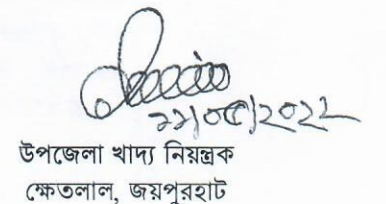 ২২/০৫/২০২২
উপজেলা খাদ্য নিয়ন্ত্রক
ক্ষেতলাল, জয়পুরহাট